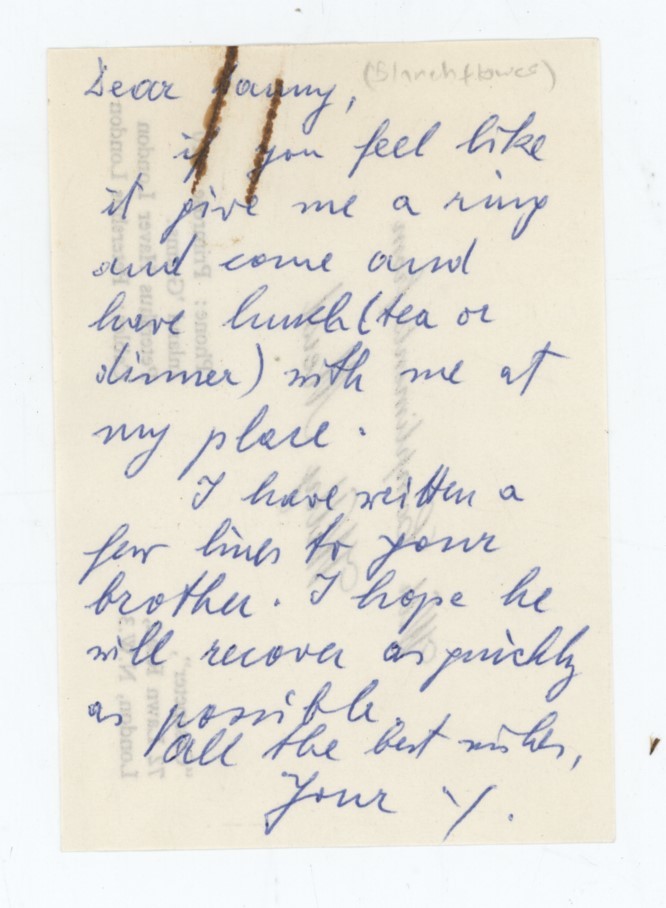 (Blanchflower)
Dear Danny,
if you feel like
it give me a ring
and come and
have lunch (tea or
dinner) with me at
my place.
I have written a
few lines to your
brother. I hope he
will recover as quickly
as possible.
All the best wishes,
Your